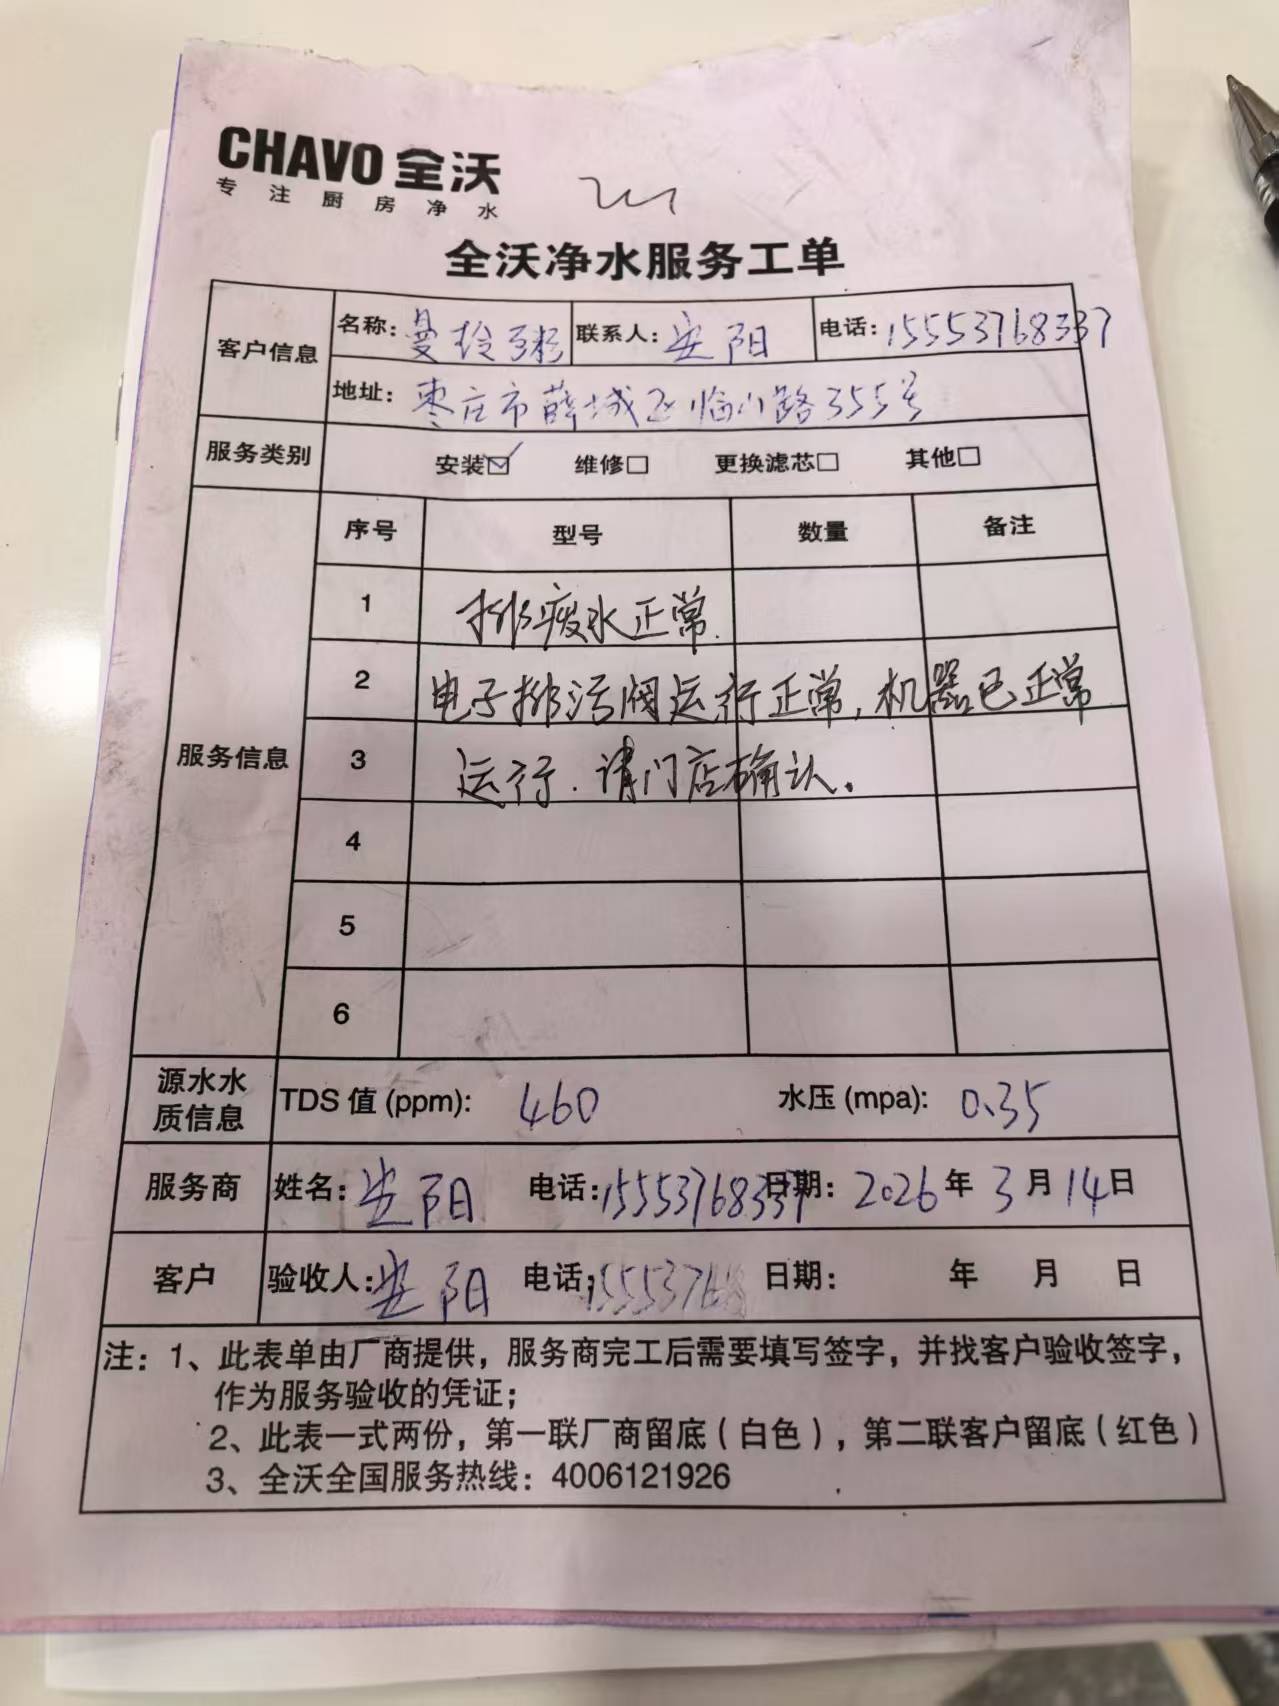 CHAVO 全沃
专注厨房净水
全沃净水服务工单
客户信息 名称: 曼玲粥 联系人: 安阳 电话: 15553768337
地址: 枣庄市薛城区临山路355号
服务类别 安装☑ 维修□ 更换滤芯□ 其他□
服务信息 序号 型号 数量 备注
1 排废水正常.
2 电子排污阀运行正常,机器已正常
3 运行.请门店确认。
4
5
6
源水水质信息 TDS 值 (ppm): 460 水压 (mpa): 0.35
服务商 姓名: 安阳 电话: 15553768337 日期: 2026 年 3 月 14 日
客户 验收人: 安阳 电话: 15553768 日期: 年 月 日
注: 1、此表单由厂商提供，服务商完工后需要填写签字，并找客户验收签字，
作为服务验收的凭证；
2、此表一式两份，第一联厂商留底（白色），第二联客户留底（红色）
3、全沃全国服务热线：4006121926